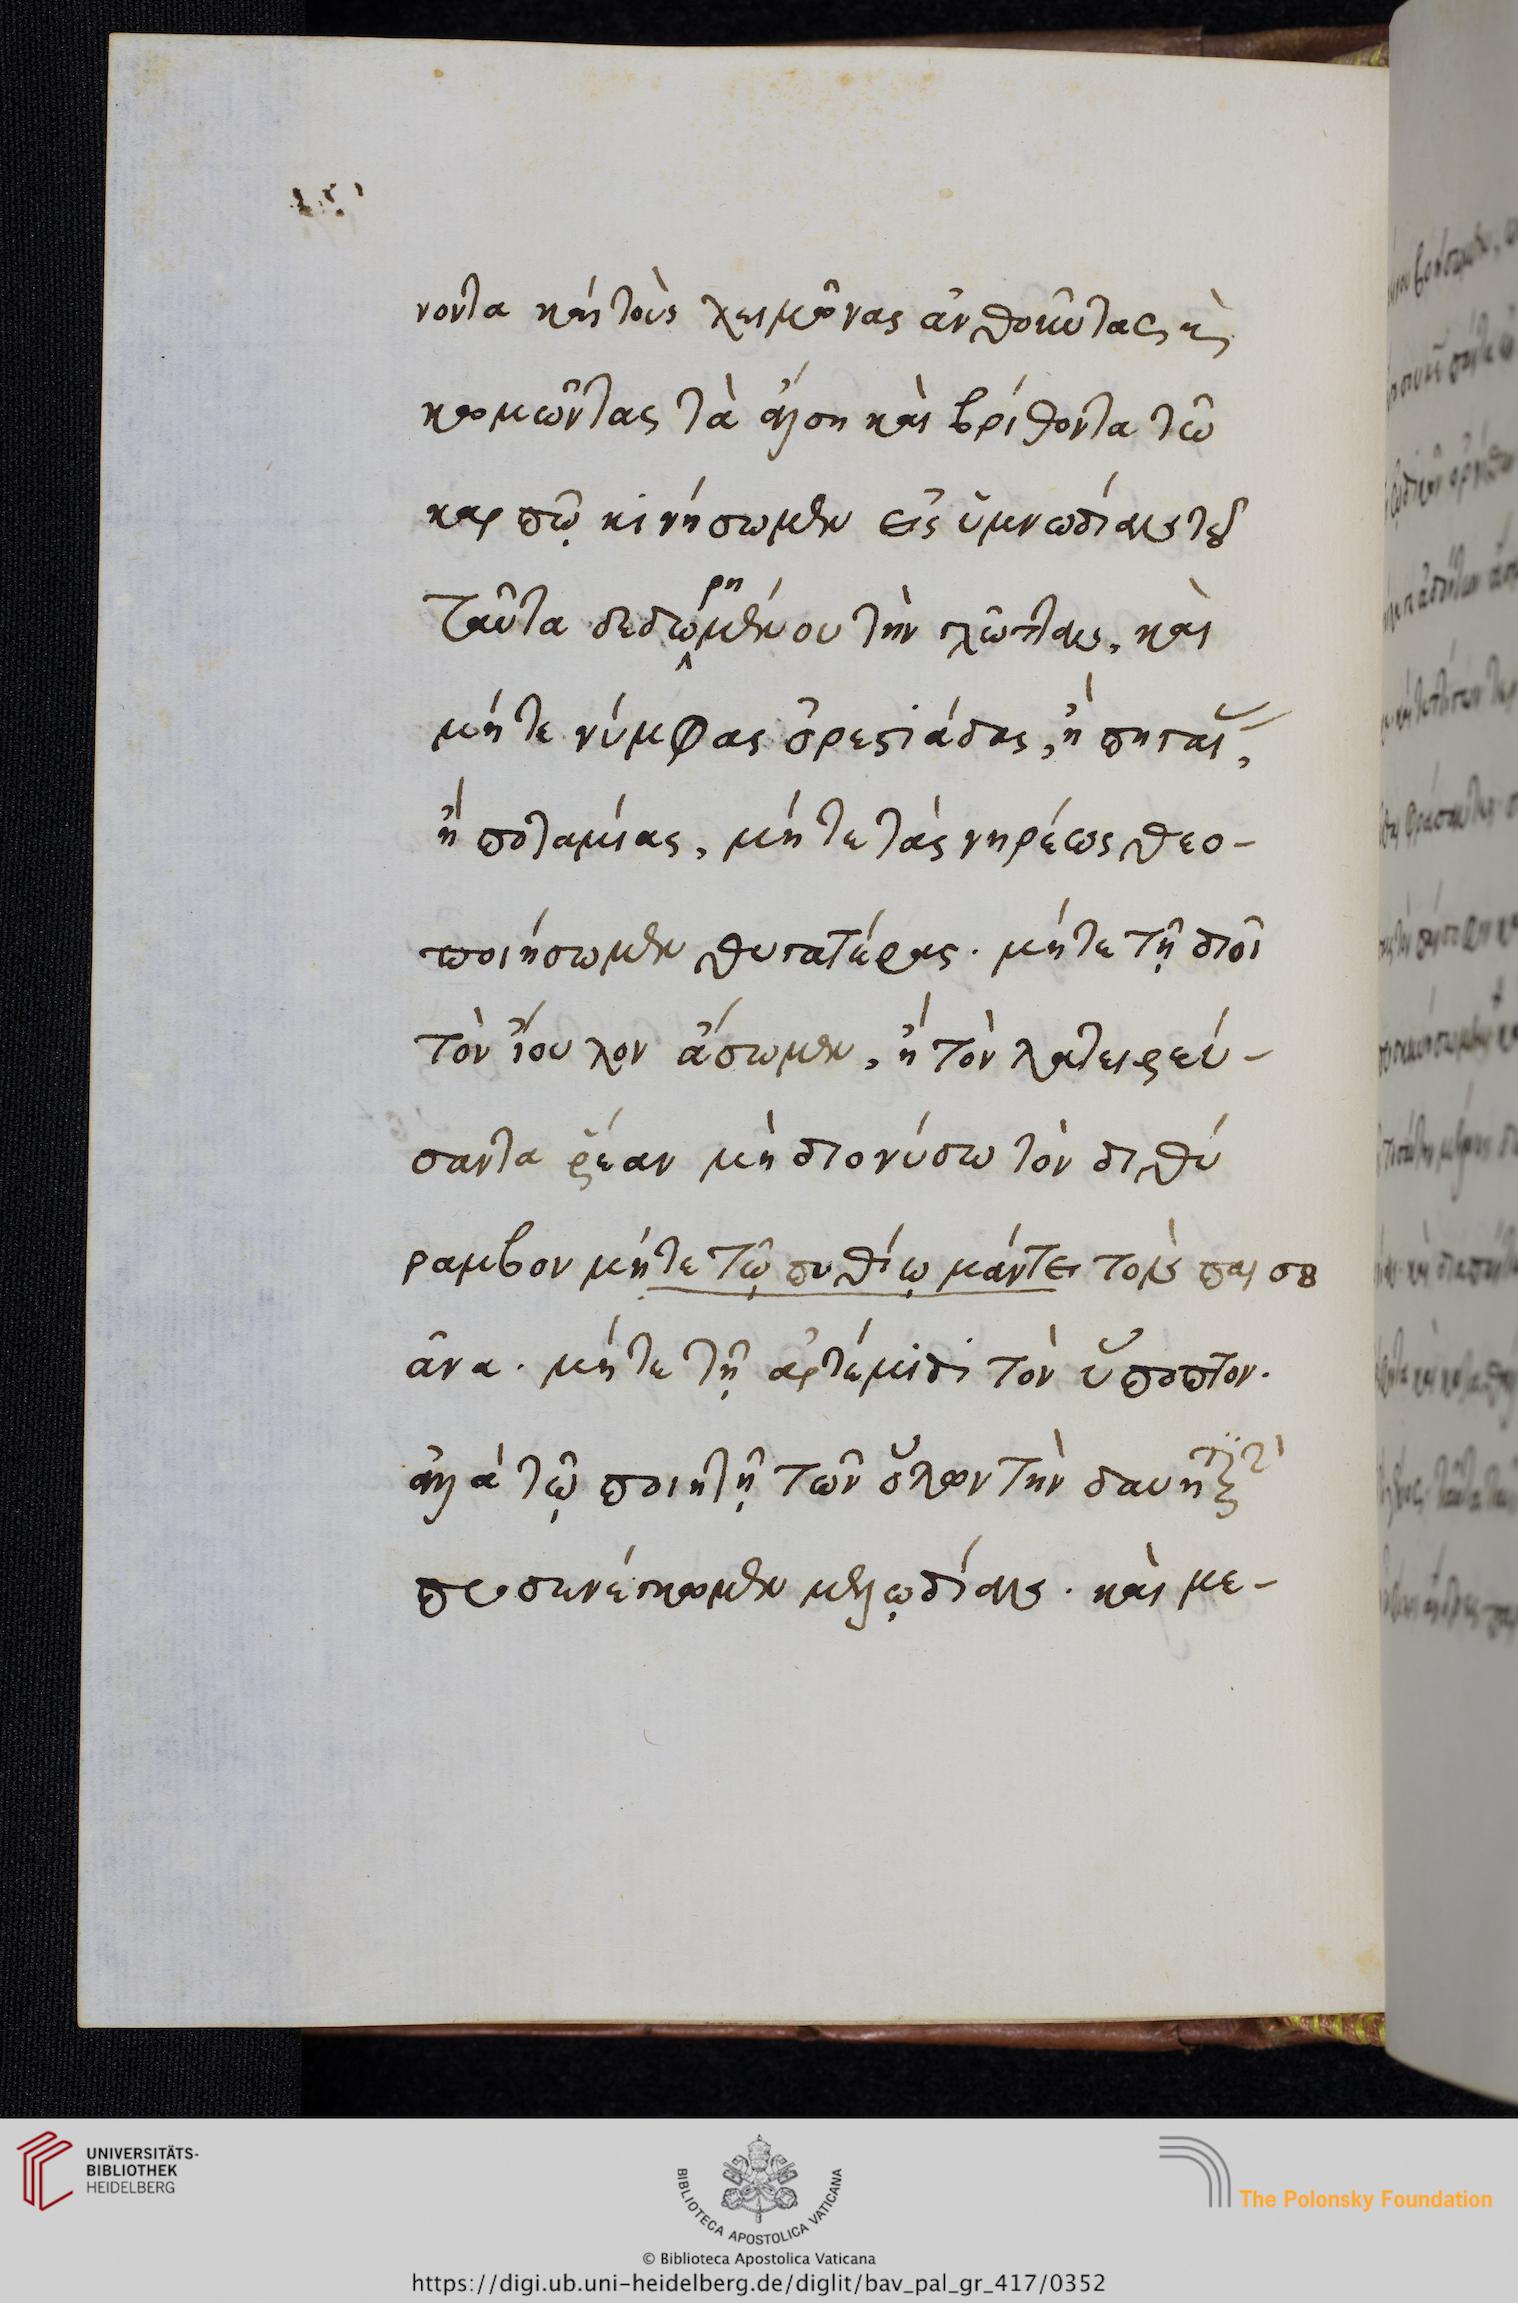 νοντα καὶ τοὺς λειμῶνας ἀνθοῦντας κ̀
κομῶντας τὰ ἄλση καὶ βρίθοντα τῶ
καρπῶ κινήσωμεν εἰς ὑμνωδίαις τοῦ
ταῦτα δεδωρημένου τὴν γλῶτταν, καὶ
μήτε νύμφας ὀρεστιάδας, ἢ πηγαί,
ἢ ποταμίας, μήτε τὰς νηρέως θεο-
ποιήσωμεν θυγατέρας. μήτε τῇ διοῖ
τὸν ἴουλον ἄσωμεν, ἢ τὸν
σαντα ῥέαν μὴ διονύσω τὸν διθύ
ραμβον μήτε τῷ πυθίῳ μάντει τοὺς παισ
ᾶνα. μήτε τῇ ἀρτέμιδι τὸν ὕποπτον.
ἀλλὰ τῷ ποιητῇ τῶν ὅλων τὴν
προσενέγκωμεν μελῳδίαις. καὶ με-
UNIVERSITÄTS-
BIBLIOTHEK
HEIDELBERG
BIBLIOTECA APOSTOLICA VATICANA
The Polonsky Foundation
© Biblioteca Apostolica Vaticana
https://digi.ub.uni-heidelberg.de/diglit/bav_pal_gr_417/0352